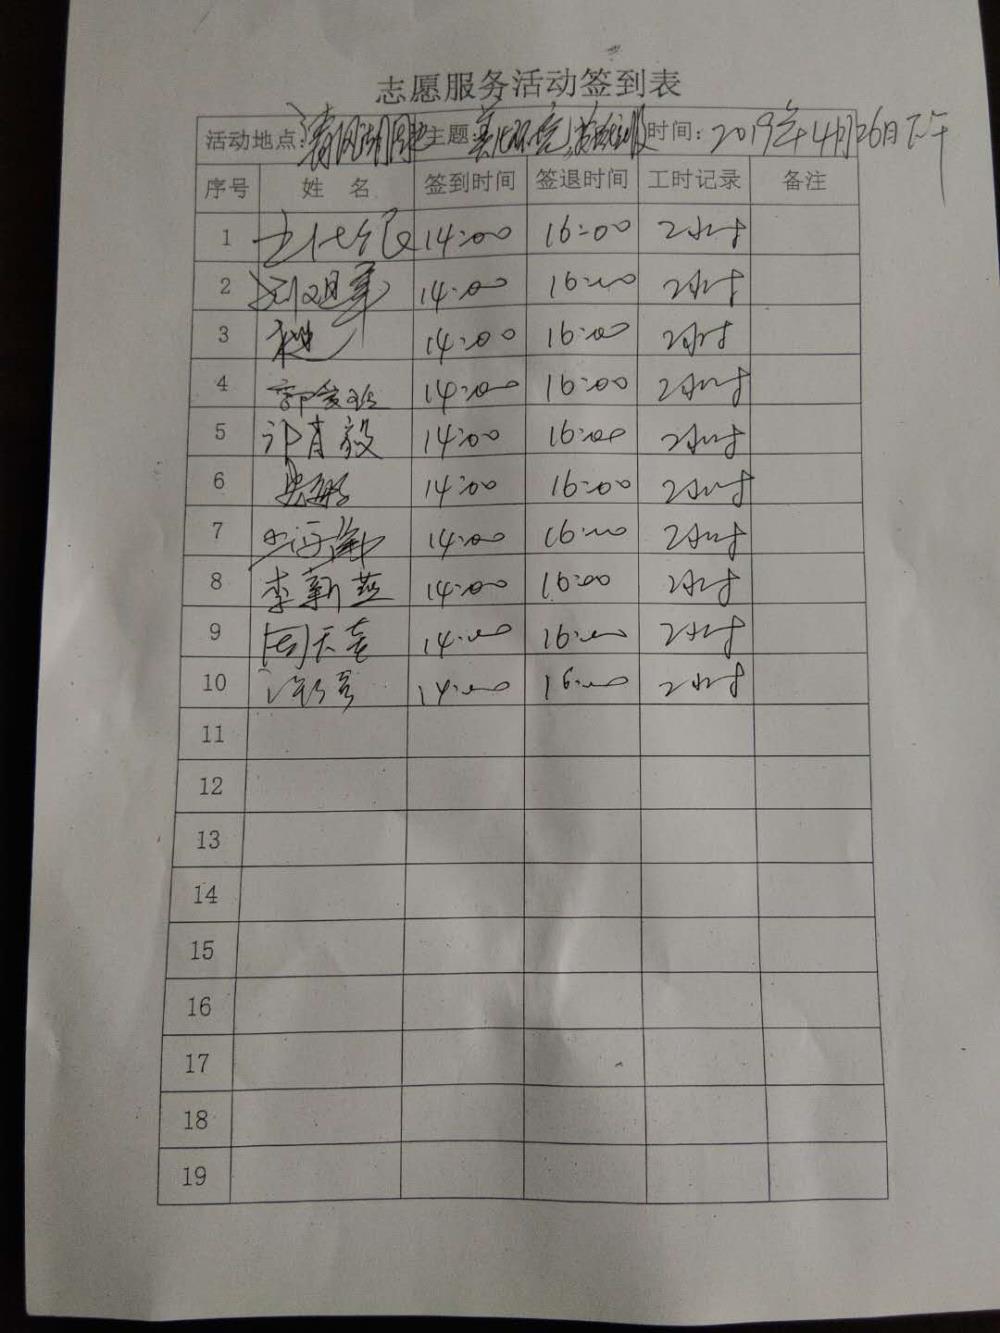 志愿服务活动签到表
活动地点: 清风湖周边 主题: 美化环境, 时间: 2019年4月26日下午
序号 姓 名 签到时间 签退时间 工时记录 备注
1 14:00 16:00 2小时
2 14:00 16:00 2小时
3 14:00 16:00 2小时
4 14:00 16:00 2小时
5 许肖毅 14:00 16:00 2小时
6 14:00 16:00 2小时
7 14:00 16:00 2小时
8 李新燕 14:00 16:00 2小时
9 周天奎 14:00 16:00 2小时
10 14:00 16:00 2小时
11
12
13
14
15
16
17
18
19